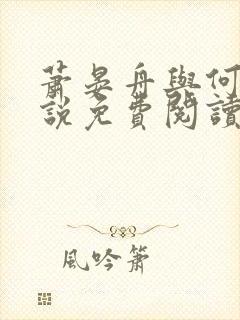 蕭晏舟與何
說免費閱讀
風吟簫